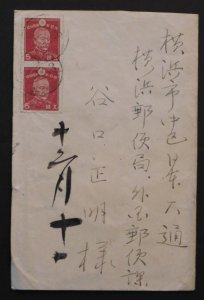 横浜市中区日本大通
横浜郵便局外国郵便課
谷口正明様
十二月十一